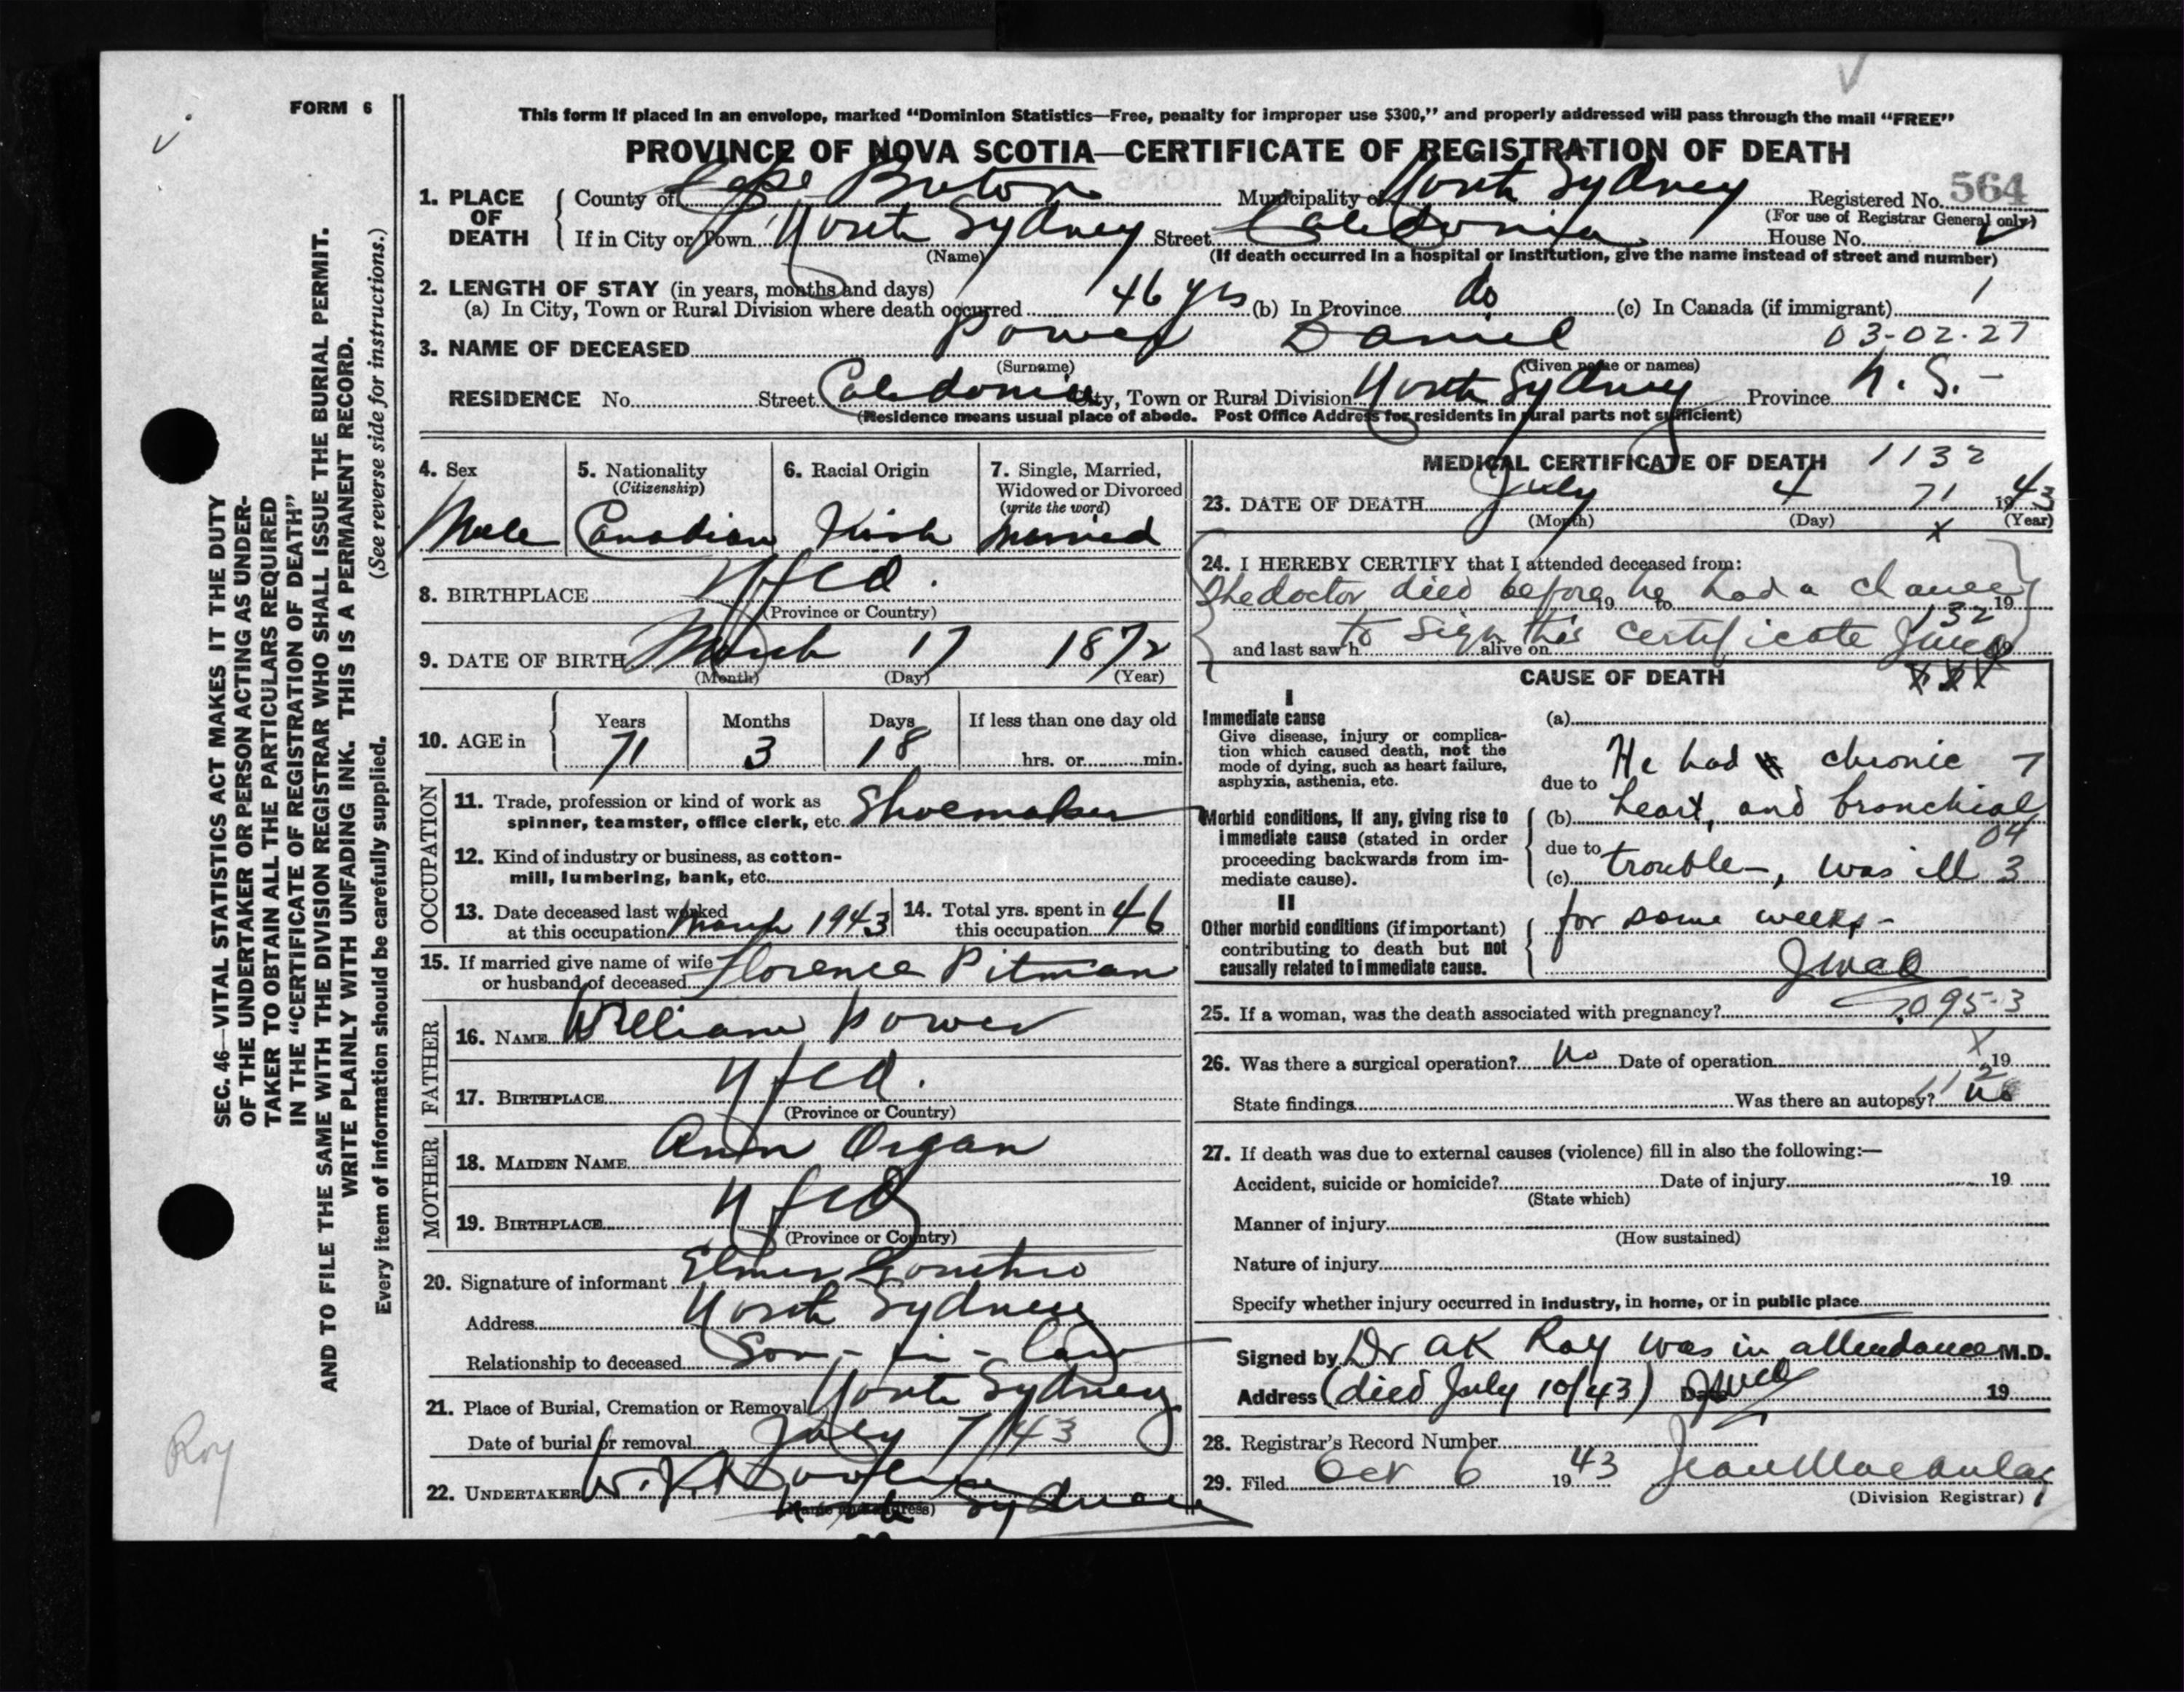 FORM 6
This form if placed in an envelope, marked "Dominion Statistics—Free, penalty for improper use $300," and properly addressed will pass through the mail "FREE"
PROVINCE OF NOVA SCOTIA—CERTIFICATE OF REGISTRATION OF DEATH
1. PLACE OF DEATH
County of Cape Breton Municipality of North Sydney Registered No. 564
(For use of Registrar General only)
If in City or Town North Sydney Street Caledonia House No.
(Name) (If death occurred in a hospital or institution, give the name instead of street and number)
2. LENGTH OF STAY (in years, months and days)
(a) In City, Town or Rural Division where death occurred 46 yrs (b) In Province do (c) In Canada (if immigrant) 1
3. NAME OF DECEASED Power Daniel 03-02-27
(Surname) (Given name or names)
RESIDENCE No. Street Caledonia City, Town or Rural Division North Sydney Province N.S.-
(Residence means usual place of abode. Post Office Address for residents in rural parts not sufficient)
4. Sex Male
5. Nationality (Citizenship) Canadian
6. Racial Origin Irish
7. Single, Married, Widowed or Divorced (write the word) Married
8. BIRTHPLACE Nfld.
(Province or Country)
9. DATE OF BIRTH March 17 1872
(Month) (Day) (Year)
10. AGE in Years 71 Months 3 Days 18 If less than one day old hrs. or min.
OCCUPATION
11. Trade, profession or kind of work as spinner, teamster, office clerk, etc. Shoemaker
12. Kind of industry or business, as cotton-mill, lumbering, bank, etc.
13. Date deceased last worked at this occupation March 1943
14. Total yrs. spent in this occupation 46
15. If married give name of wife or husband of deceased Florence Pitman
FATHER
16. NAME William Power
17. BIRTHPLACE Nfld.
(Province or Country)
MOTHER
18. MAIDEN NAME Ann Organ
19. BIRTHPLACE Nfld
(Province or Country)
20. Signature of informant Elmer
Address North Sydney
Relationship to deceased Son-in-law
21. Place of Burial, Cremation or Removal North Sydney
Date of burial or removal July 7/43
22. UNDERTAKER W.
North Sydney
(Name and address)
MEDICAL CERTIFICATE OF DEATH 1132
23. DATE OF DEATH July 4 71 1943
(Month) (Day) (Year)
x
24. I HEREBY CERTIFY that I attended deceased from:
The doctor died before he had a chance
19 to 19
132
to sign this certificate
and last saw h alive on 19
CAUSE OF DEATH XXX
I
Immediate cause
Give disease, injury or complication which caused death, not the mode of dying, such as heart failure, asphyxia, asthenia, etc.
Morbid conditions, if any, giving rise to immediate cause (stated in order proceeding backwards from immediate cause).
II
Other morbid conditions (if important) contributing to death but not causally related to immediate cause.
(a)
due to He had chronic 7
(b) heart, and bronchial
due to 04
(c) trouble-, was ill 3
for some weeks-
25. If a woman, was the death associated with pregnancy? 095-3
26. Was there a surgical operation? No Date of operation X 19
State findings Was there an autopsy? No
27. If death was due to external causes (violence) fill in also the following:—
Accident, suicide or homicide? Date of injury 19
(State which)
Manner of injury
(How sustained)
Nature of injury
Specify whether injury occurred in industry, in home, or in public place
Signed by Dr AK Roy was in attendance M.D.
Address (died July 10/43) Date 19
28. Registrar's Record Number
29. Filed Oct 6 1943 Jean Macaulay
(Division Registrar)
SEC. 46—VITAL STATISTICS ACT MAKES IT THE DUTY
OF THE UNDERTAKER OR PERSON ACTING AS UNDER-
TAKER TO OBTAIN ALL THE PARTICULARS REQUIRED
IN THE "CERTIFICATE OF REGISTRATION OF DEATH"
AND TO FILE THE SAME WITH THE DIVISION REGISTRAR WHO SHALL ISSUE THE BURIAL PERMIT.
WRITE PLAINLY WITH UNFADING INK. THIS IS A PERMANENT RECORD.
(See reverse side for instructions.)
Every item of information should be carefully supplied.
Roy